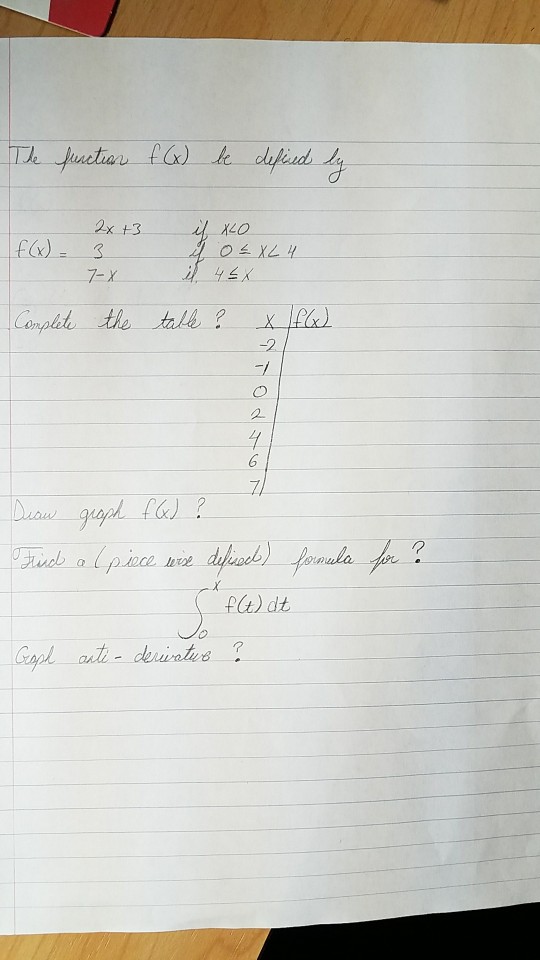 The function f(x) be defined by
2x +3 if x<0
f(x) = 3 if 0 ≤ x < 4
7-x if 4 ≤ x
Complete the table ? x f(x)
-2
-1
0
2
4
6
7
Draw graph f(x) ?
Find a (piece wise defined) formula for ?
∫₀ˣ f(t) dt
Graph anti-derivative ?